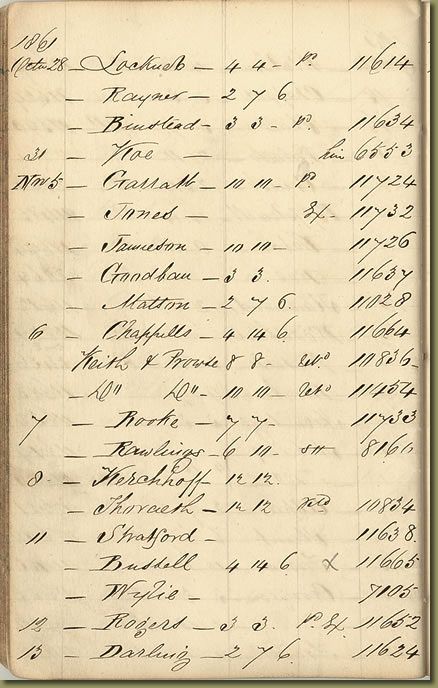 1861
Octr 28 — Lockett — 4 4 - Pd 11614
— Rayner — 2 7 6
— Binstead — 3 3 - Pd 11634
31 — Koe — hire 6553
Nov 5 — Garratt — 10 10 - Pd 11724
— Jones — Ex - 11732
— Jamieson — 10 10 - 11726
— Goodban — 3 3. 11637
— Matton — 2 7 6. 11028
6 — Chappells — 4 14 6. 11664
Keith & Prowse 8 8 - 10836
— Do — Do — 10 10 - 11454
7 — Rooke — 7 7 - 11733
— Rawlings — 6 10 - 8160
8 — Kerchhoff — 12 12.
— 12 12 10834
11 — Stratford — 11638
— Bussell 4 14 6 x 11605
— Wylie — 7105
12 — Rogers — 3 3. Pd. Ex. 11652
13 — Darling — 2 7 6. 11624